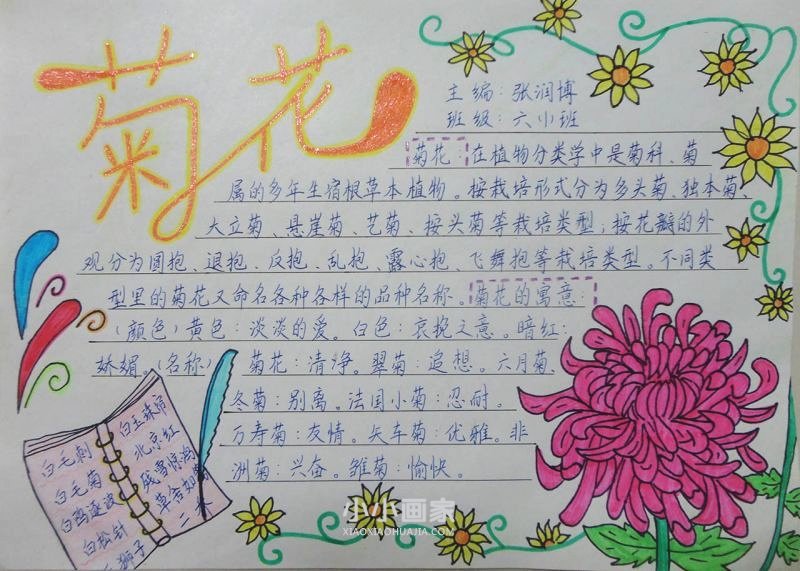 菊花
主编：张润博
班级：六小班
菊花：在植物分类学中是菊科、菊
属的多年生宿根草本植物。按栽培形式分为多头菊、独本菊、
大立菊、悬崖菊、艺菊、按头菊等栽培类型；按花瓣的外
观分为圆抱、退抱、反抱、乱抱、露心抱、飞舞抱等栽培类型。不同类
型里的菊花又命名各种各样的品种名称。菊花的寓意：
（颜色）黄色：淡淡的爱。白色：哀挽之意。暗红：
娇媚。（名称） 菊花：清净。翠菊：追想。六月菊、
冬菊：别离。法国小菊：忍耐。
万寿菊：友情。矢车菊：优雅。非
洲菊：兴奋。雏菊：愉快。
白毛刺
白毛菊
白鸥逐波
白松针
狮子
白玉珠帘
北京红
残雪惊鸿
草舍如
二
小小画家
XIAOXIAOHUAJIA.COM